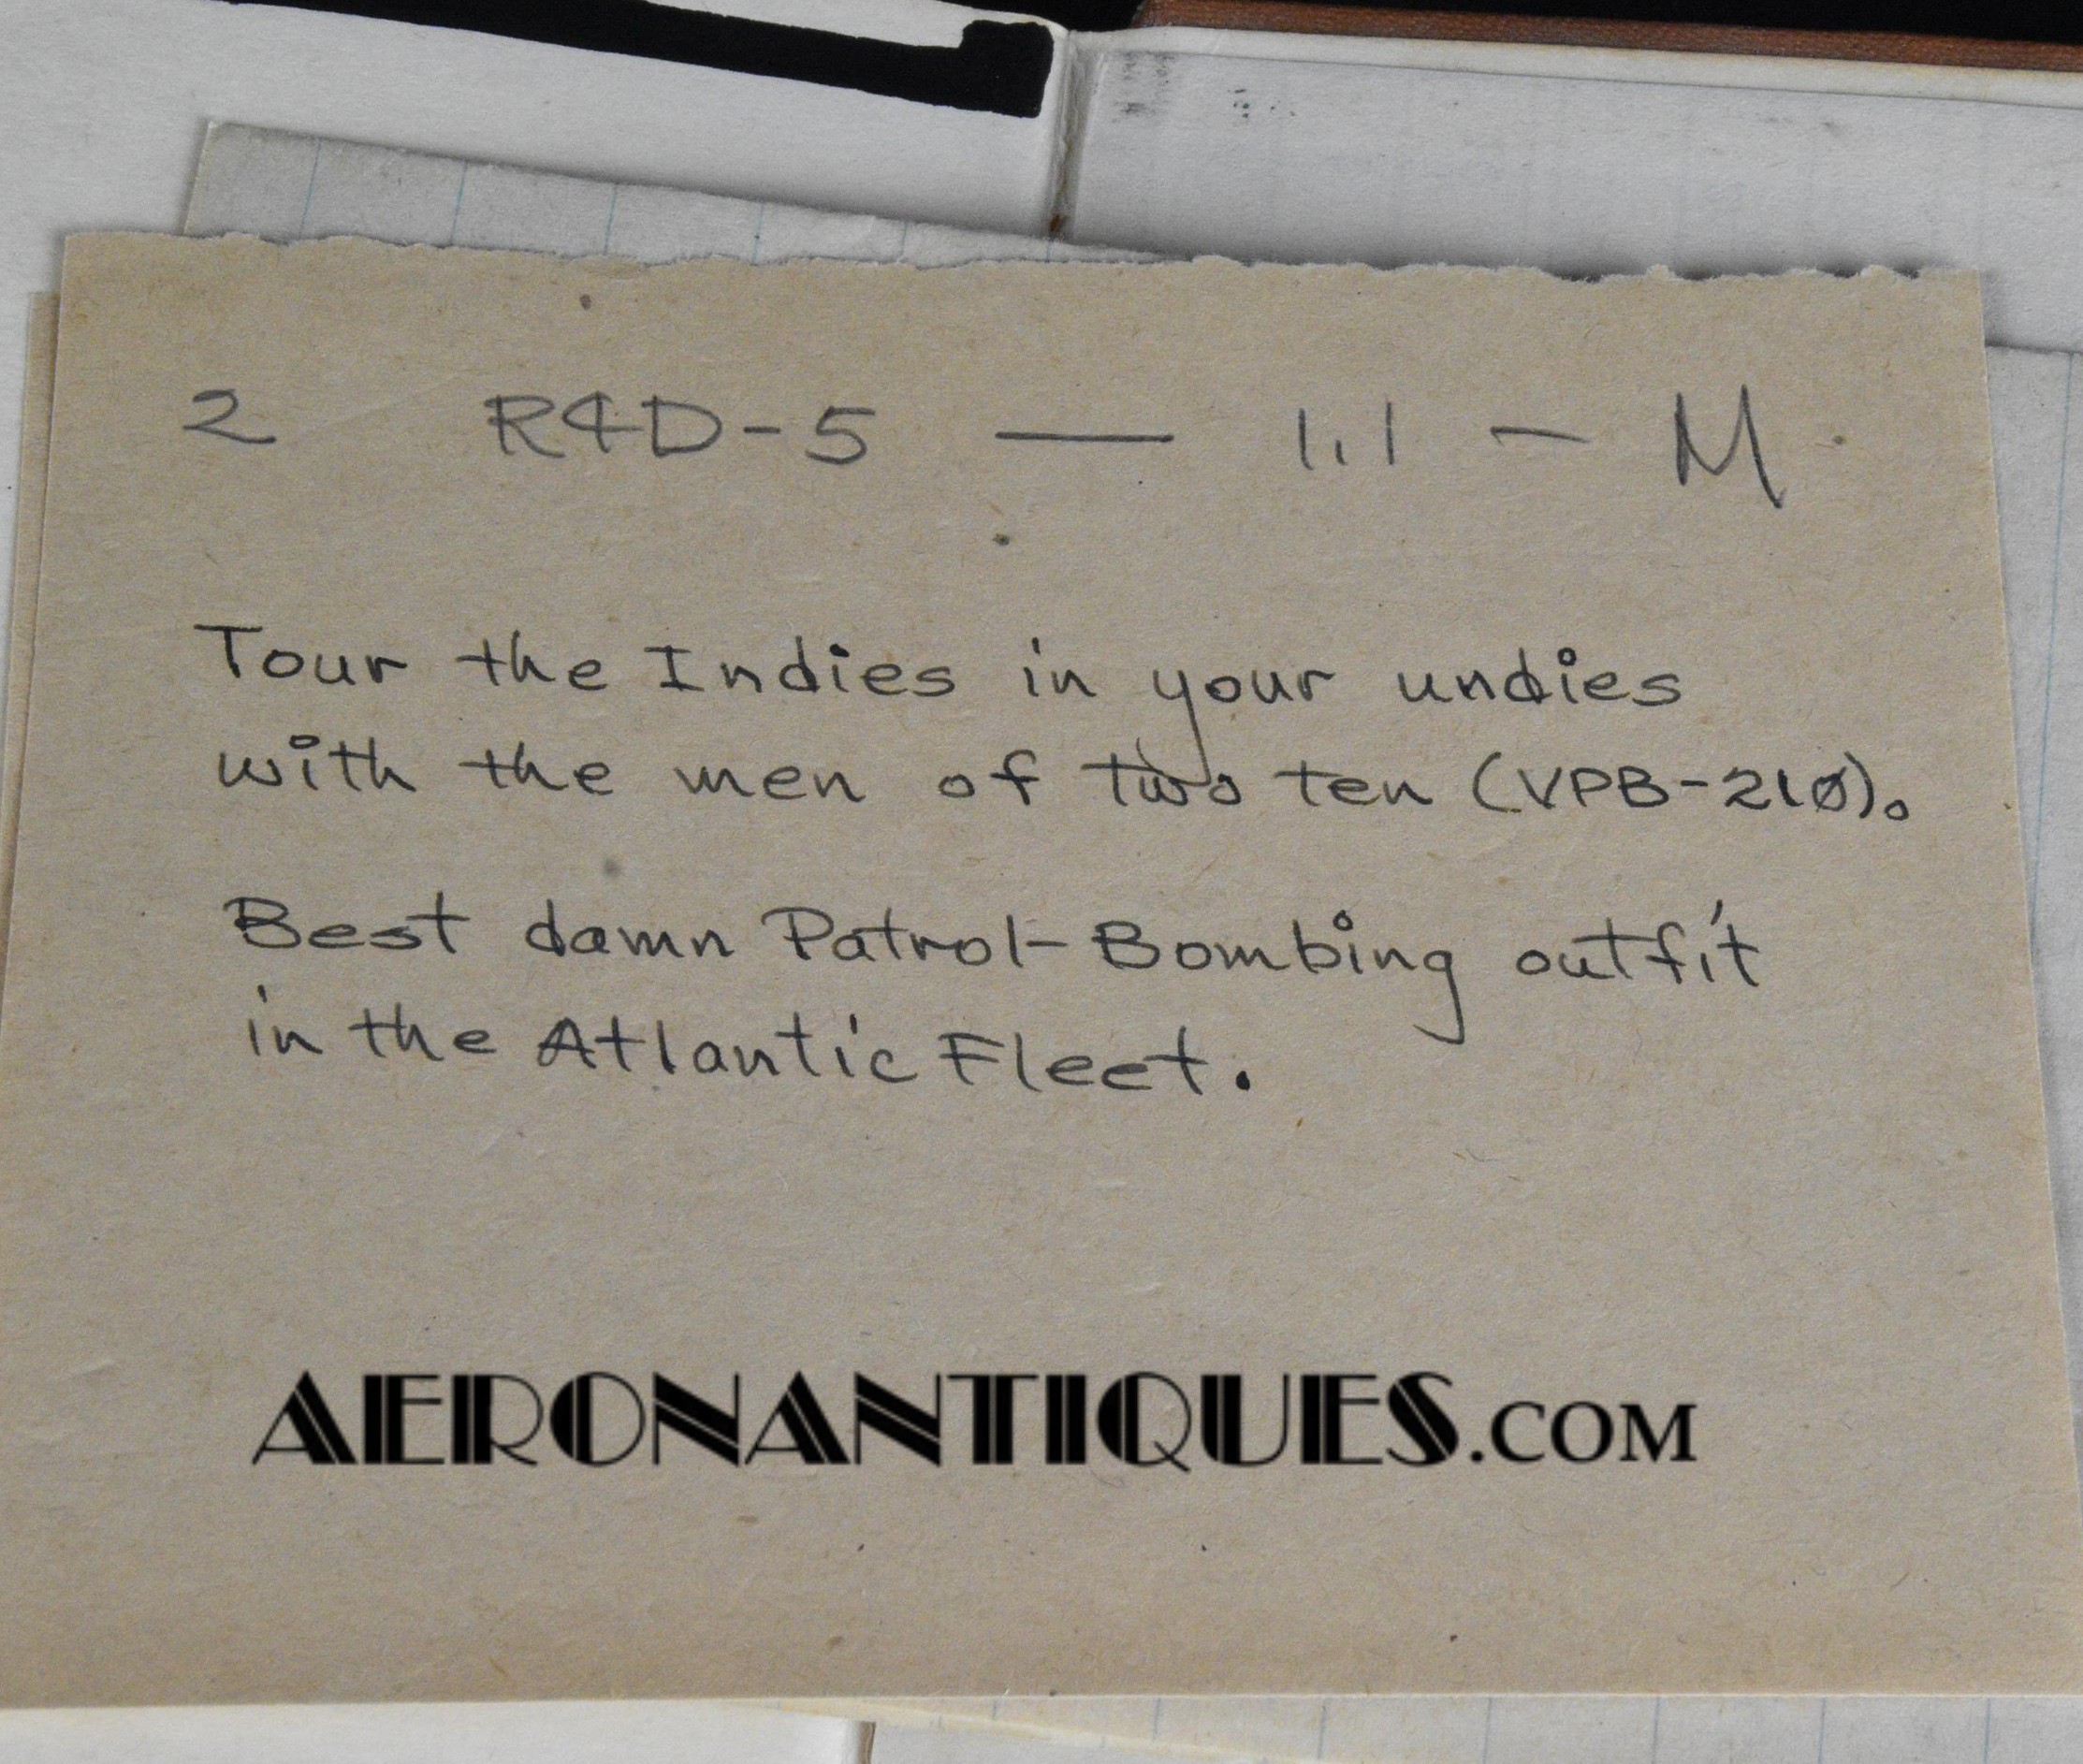 2 R4D-5 — 1.1 — M
Tour the Indies in your undies
with the men of two ten (VPB-210).
Best damn Patrol-Bombing outfit
in the Atlantic Fleet.
AERONANTIQUES.COM